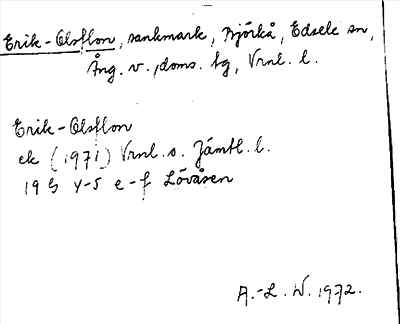 Erik-Olsflon, sankmark, Björkå, Edsele sn,
Ång. v., doms. lg, Vrnl. l.
Erik-Olsflon
ek (1971) Vrnl. o. Jämtl. l.
19 G Y-5 e-f Lövåsen
A.-L. W. 1972.